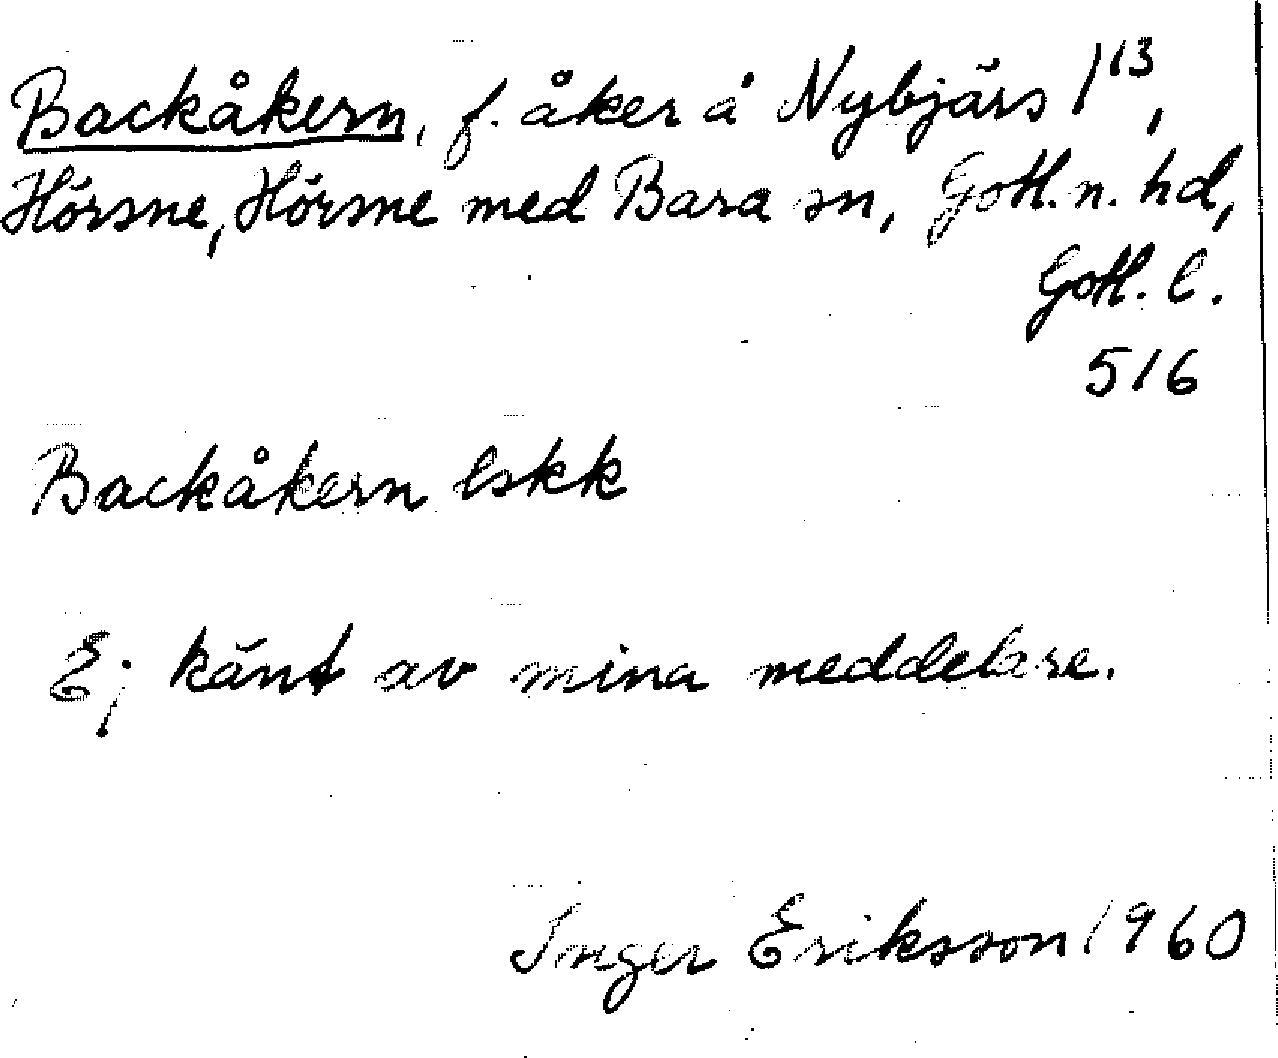 Backåkern, f. åker å Nybjärs 1¹³,
Hörsne, Hörsne med Bara sn, Gotl. n. hd,
Gotl. l.
516
Backåkern lskk
Ej känt av mina meddelare.
Inger Eriksson 1960